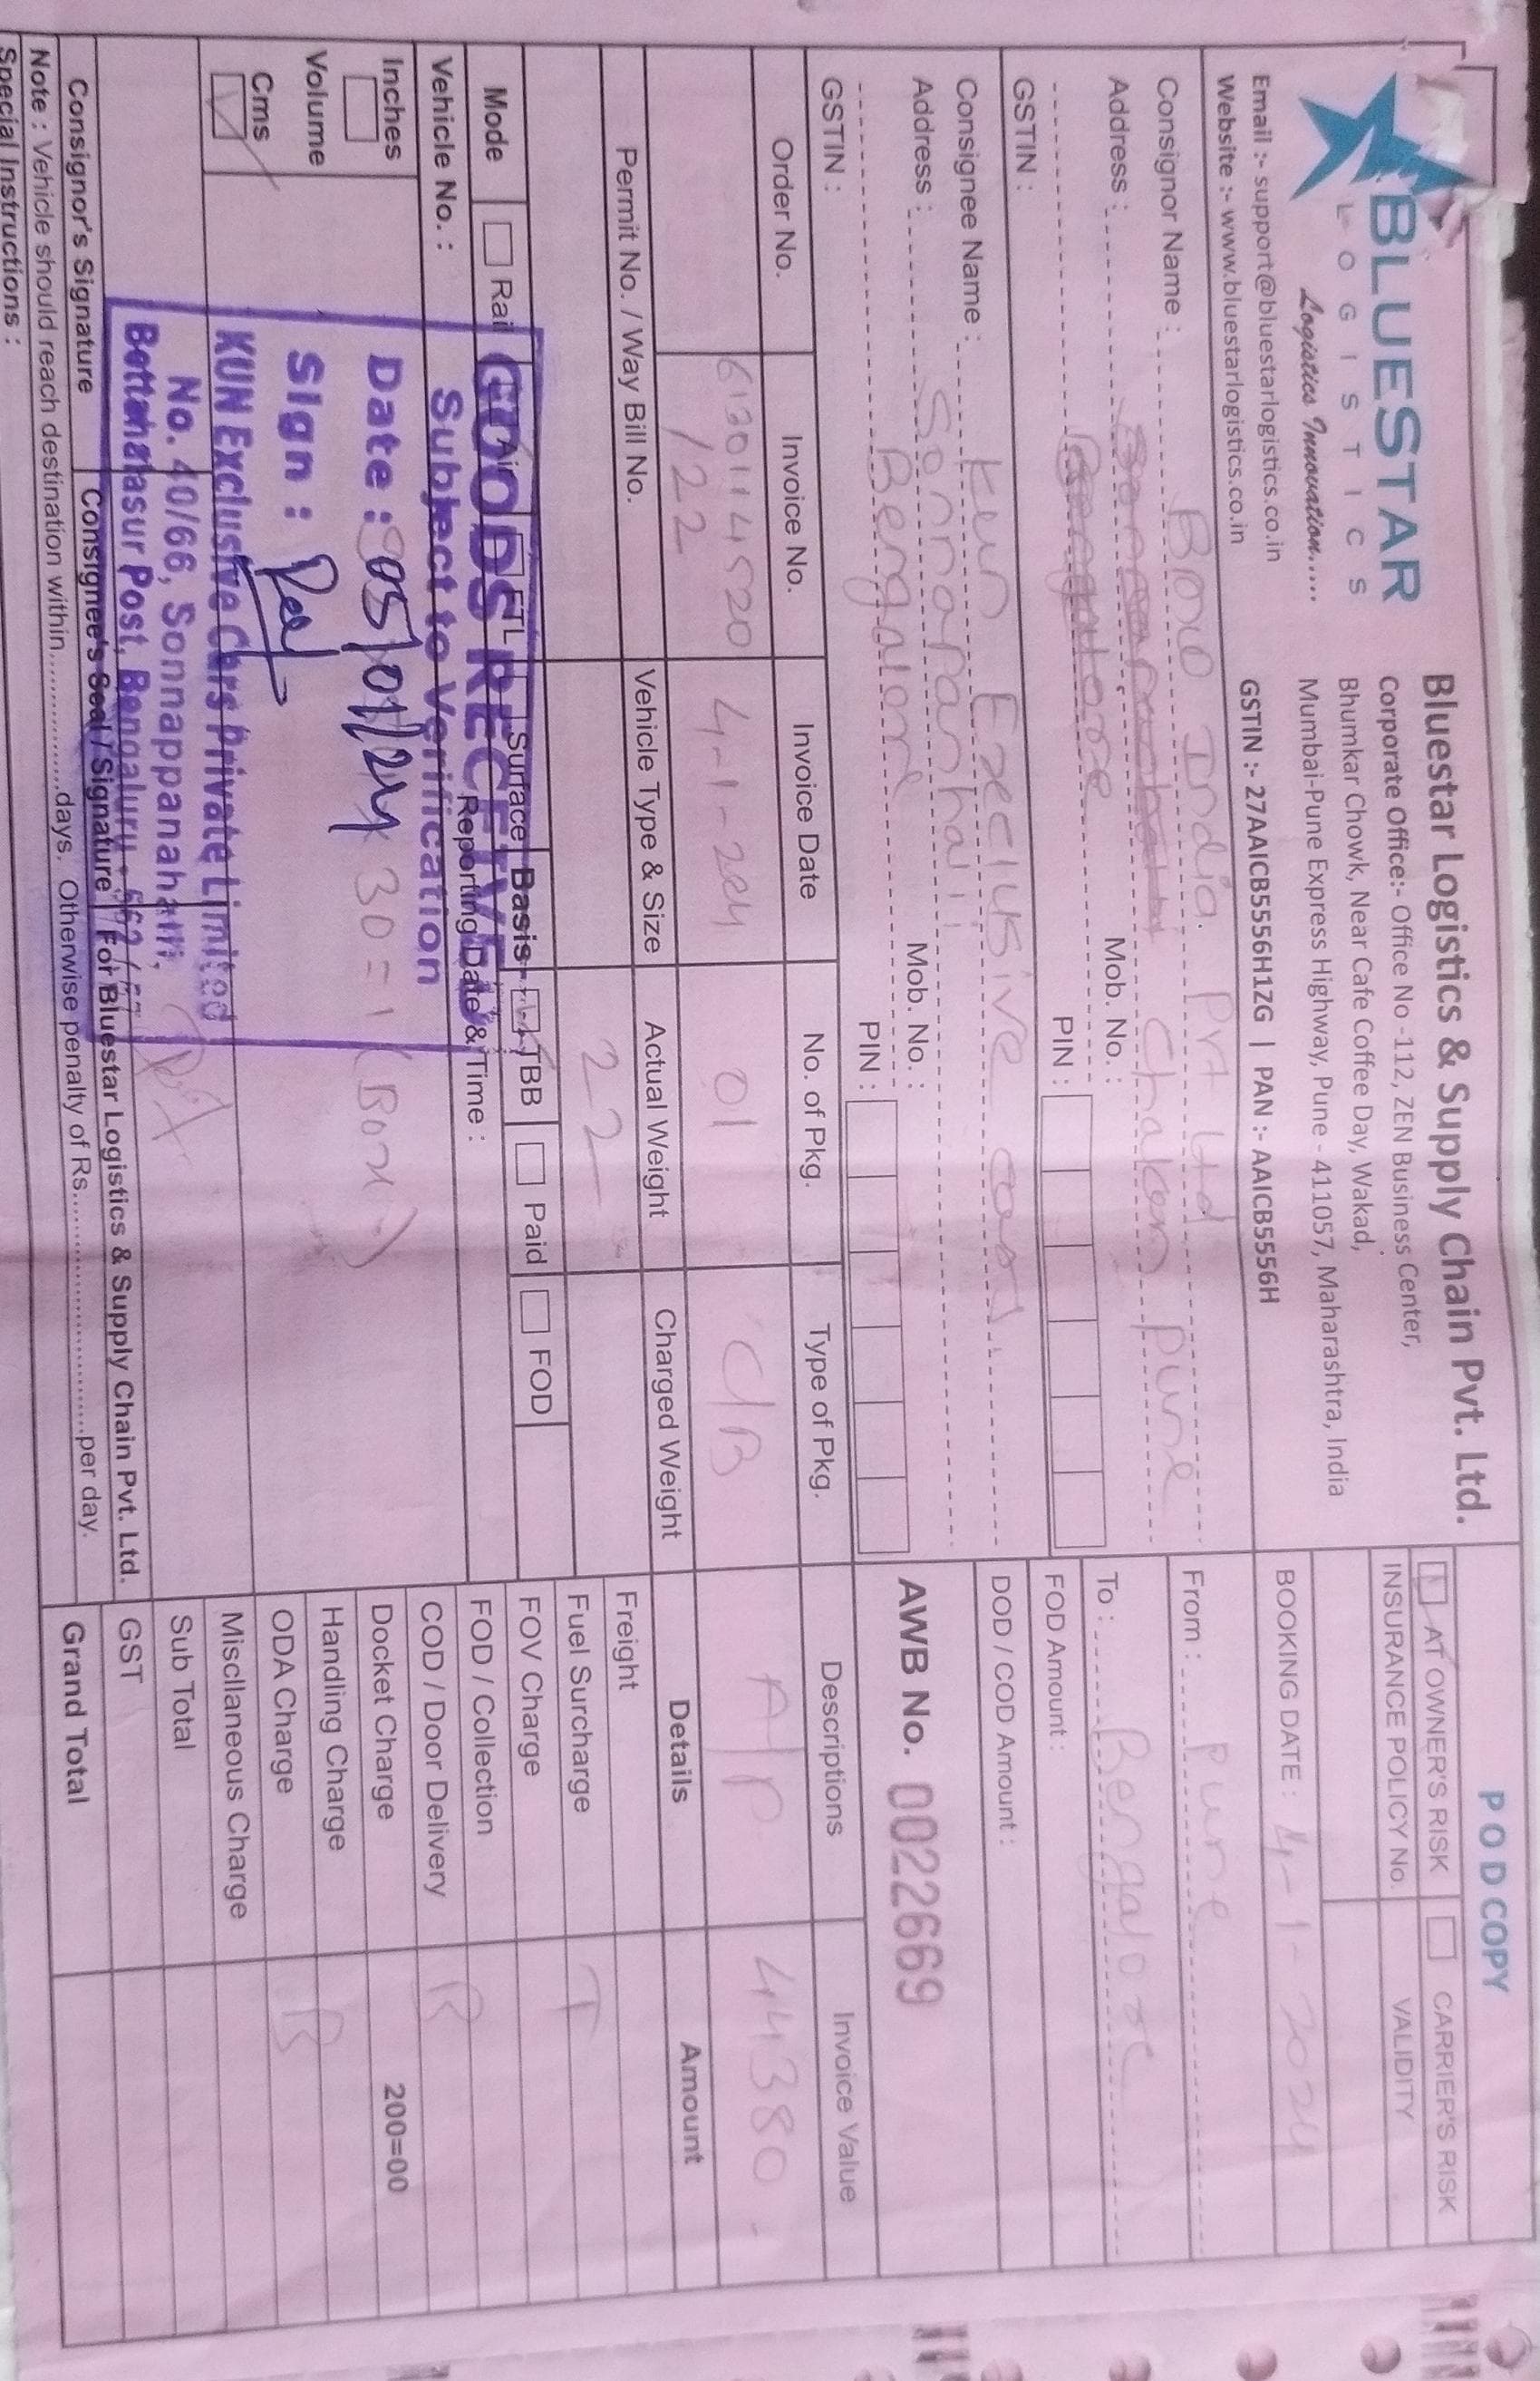 BLUESTAR
LOGISTICS
Logistics Innovation.....
Email :- support@bluestarlogistics.co.in
Website :- www.bluestarlogistics.co.in
Bluestar Logistics & Supply Chain Pvt. Ltd.
Corporate Office:- Office No -112, ZEN Business Center,
Bhumkar Chowk, Near Cafe Coffee Day, Wakad,
Mumbai-Pune Express Highway, Pune - 411057, Maharashtra, India
GSTIN :- 27AAICB5556H1ZG | PAN :- AAICB5556H
POD COPY
AT OWNER'S RISK CARRIER'S RISK
INSURANCE POLICY No. VALIDITY
BOOKING DATE : 4-1-2024
From : Pune
To : Bengalore
FOD Amount :
DOD / COD Amount :
AWB No. 0022669
Consignor Name : India Pvt Ltd
Address : Chakan Pune
Bengalore
Mob. No. :
PIN :
GSTIN :
Consignee Name : Kun Execlusive cars.
Address : Sonnapanhalli
Bengalore
Mob. No. :
PIN :
GSTIN :
Order No. Invoice No. Invoice Date No. of Pkg. Type of Pkg. Descriptions Invoice Value
6130114520 4-1-224 01 C/B A/P 44380
/22
Permit No. / Way Bill No. Vehicle Type & Size Actual Weight Charged Weight Details Amount
22
Freight
Fuel Surcharge T
FOV Charge
FOD / Collection
COD / Door Delivery B
Docket Charge 200=00
Handling Charge
ODA Charge B
Miscllaneous Charge
Sub Total
GST
Grand Total
Mode Rail Air FTL Surface Basis TBB Paid FOD
Vehicle No. : Reporting Date & Time :
Inches
Volume
Cms
30=1 (Box)
GOODS RECEIVED
Subject to Verification
Date : 05/01/24
Sign :
KUN Exclusive Cars Private Limited
No. 40/66, Sonnappanahalli,
Bettahalasur Post, Bengaluru -
Consignor's Signature Consignee's Seal / Signature For Bluestar Logistics & Supply Chain Pvt. Ltd.
Note : Vehicle should reach destination within................days. Otherwise penalty of Rs..............................per day.
Special Instructions :